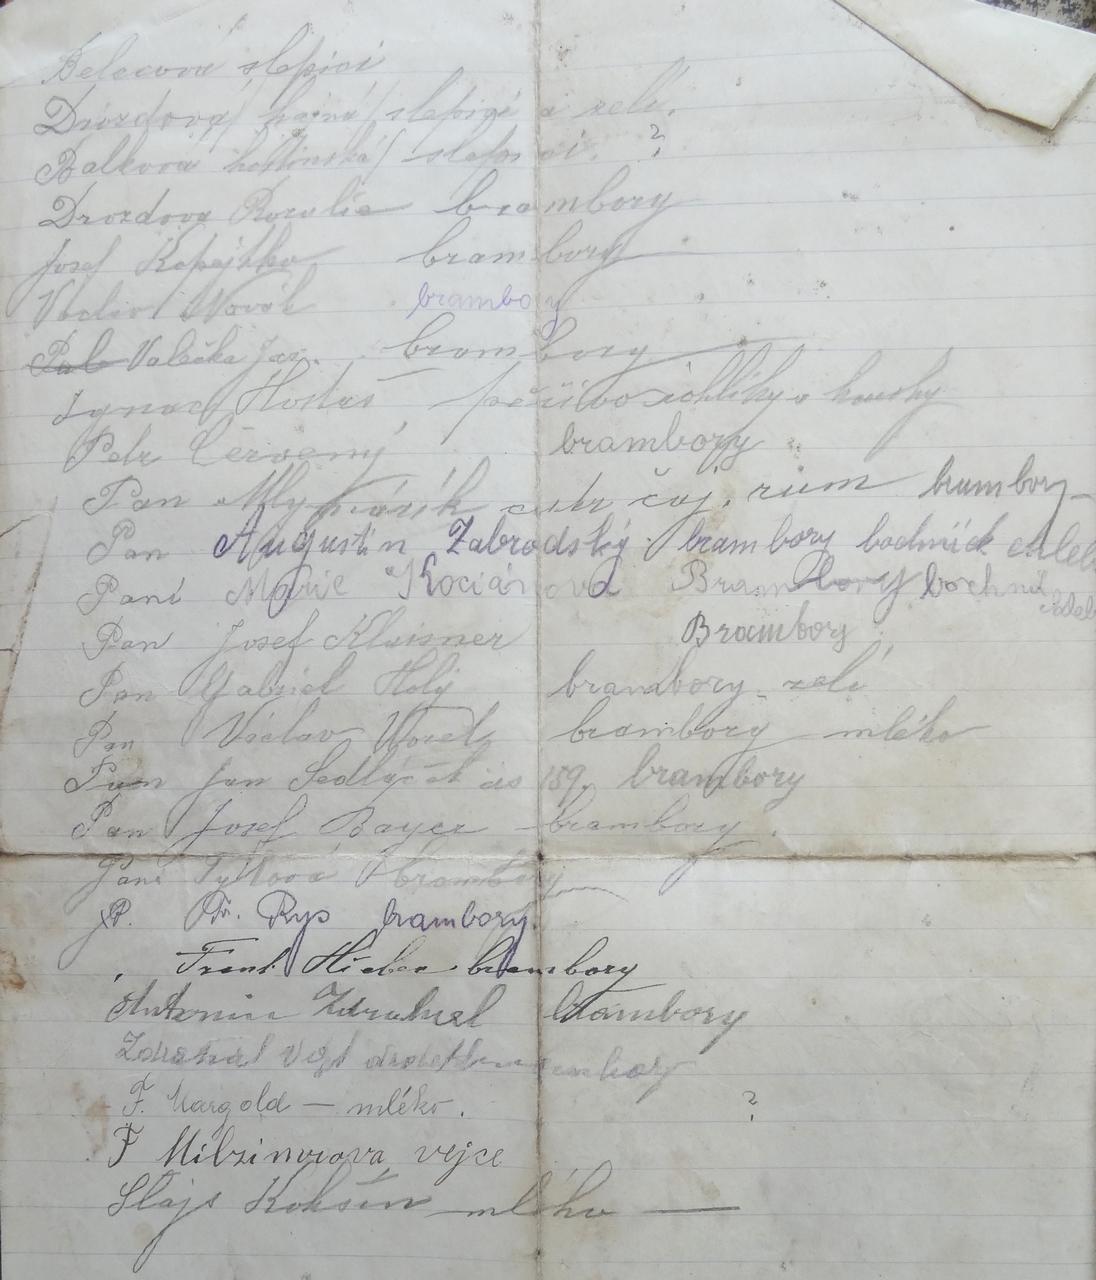 Belecová slepici
Drozdová / hajná / slepici a zelí.
Balková hostinská / slepici. ?
Drozdova Rozalie brambory
Josef Kopejtko brambory
Václav Novák brambory
Valečka Jar. brambory
Ignac Hostaš rohlíky a housky
Petr Červený brambory
Pan cukr čaj, rum brambory
Pan Augustin Zabrodský brambory bochníck chleb
Paní Marie Kociánová Brambory bochník chleb
Pan Josef Klaisner Brambory
Pan Gabriel Holý brambory zelí
Pan Václav brambory mléko
Pan Jan Sedláček čís 159, brambory
Pan Josef Bayer brambory.
Paní brambory
P. Fr. Rys brambory.
Frant. brambory
Antonin Zdrahal brambory
Zdrahal
F. Margold – mléko. ?
F Milzinorova vejce
Slajs mléko —